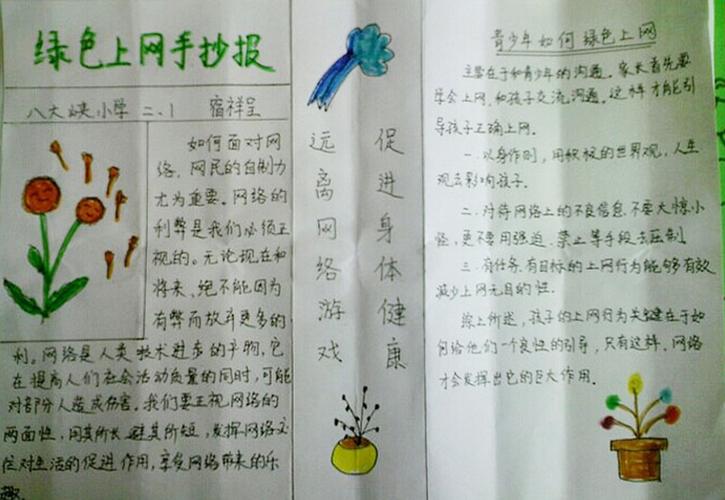 绿色上网手抄报
八大峡小学 二、1 宿祥呈
如何面对网
络，网民的自制力
尤为重要。网络的
利弊是我们必须正
视的。无论现在和
将来，绝不能因为
有弊而放弃更多的
利。网络是人类技术进步的产物，它
在提高人们社会活动质量的同时，可能
对部分人造成伤害。我们要正视网络的
两面性，用其所长，避其所短，发挥网络
对生活的促进作用，享受网络带来的乐
趣。
促进身体健康
远离网络游戏
青少年如何绿色上网
主要在于和青少年的沟通。家长首先要
学会上网，和孩子交流，沟通。这样才能引
导孩子正确上网。
一．以身作则，用积极的世界观，人生
观去影响孩子。
二．对待网络上的不良信息，不要大惊小
怪，更不要用强迫、禁止等手段去压制
三．有任务，有目标的上网行为能够有效
减少上网无目的性．
综上所述，孩子的上网行为关键在于如
何给他们一个良性的引导，只有这样．网络
才会发挥出它的巨大作用．